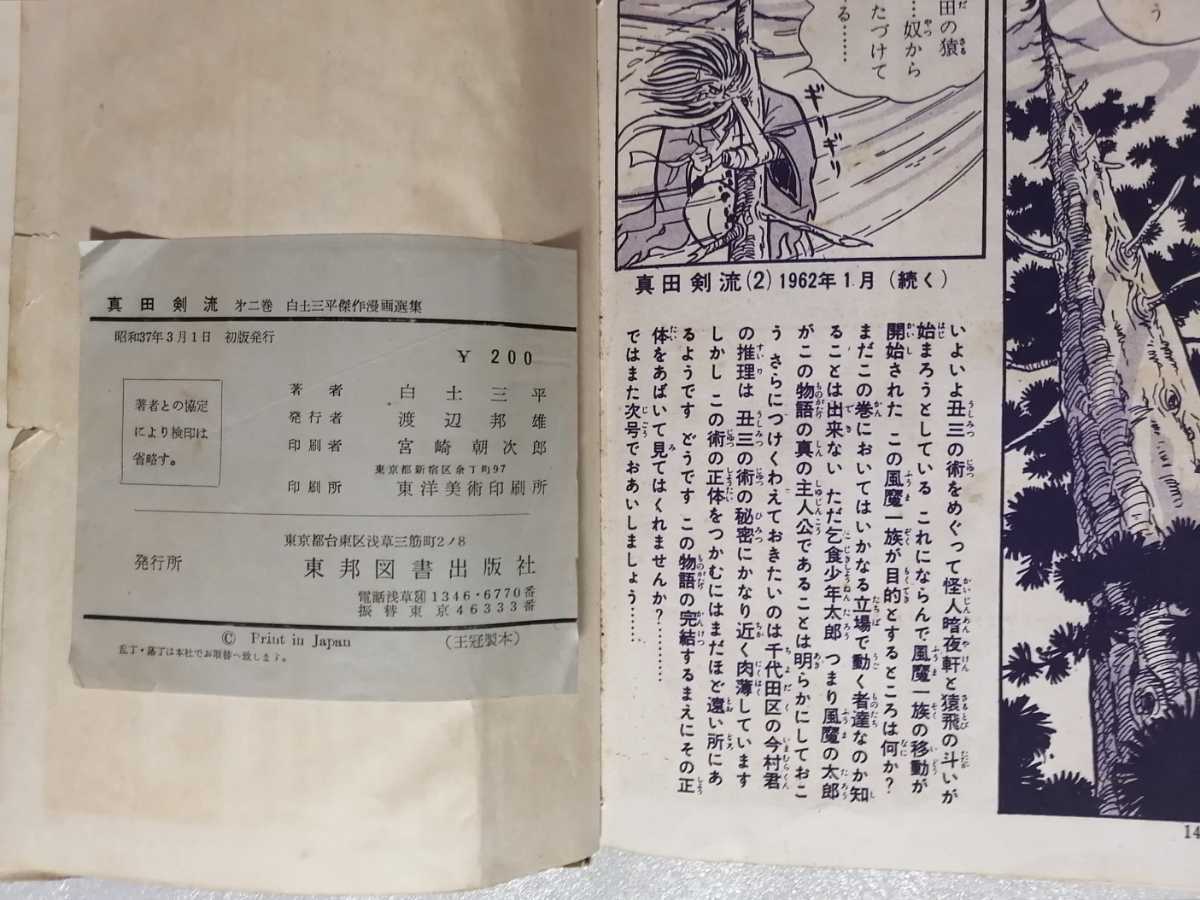 真田剣流 才二巻 白土三平傑作漫画選集
昭和37年3月1日 初版発行
¥ 200
著者との協定
により検印は
省略す。
著者 白土三平
発行者 渡辺邦雄
印刷者 宮崎朝次郎
東京都新宿区余丁町97
印刷所 東洋美術印刷所
東京都台東区浅草三筋町2ノ8
発行所 東邦図書出版社
電話浅草(84)1346・6770番
振替東京46333番
© Print in Japan (王冠製本)
乱丁・落丁は本社でお取替へ致します。
う
田の猿
…奴から
たづけて
る……
ギリギリ
真田剣流(2) 1962年1月 (続く)
いよいよ丑三の術をめぐって怪人暗夜軒と猿飛の斗いが
始まろうとしている これにならんで風魔一族の移動が
開始された この風魔一族が目的とするところは何か?
まだこの巻においてはいかなる立場で動く者達なのか知
ることは出来ない ただ乞食少年太郎 つまり風魔の太郎
がこの物語の真の主人公であることは明らかにしておこ
う さらにつけくわえておきたいのは千代田区の今村君
の推理は 丑三の術の秘密にかなり近く肉薄しています
しかし この術の正体をつかむにはまだほど遠い所にあ
るようです どうです この物語の完結するまえにその正
体をあばいて見てはくれませんか?………
ではまた次号でおあいしましょう……
14